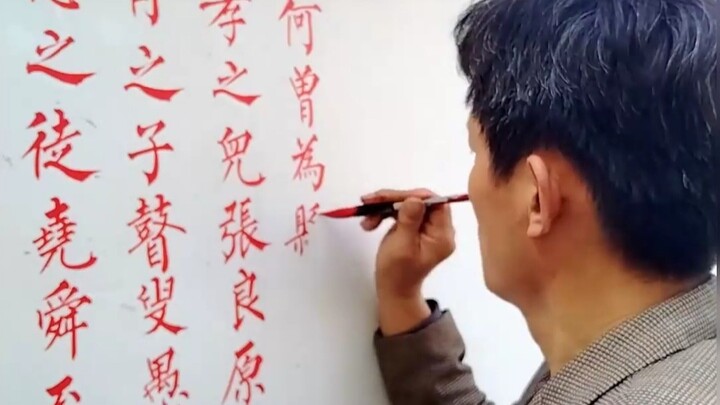 之徒堯舜至
肖之子瞽叟愚
孝之兒張良原
何曾為